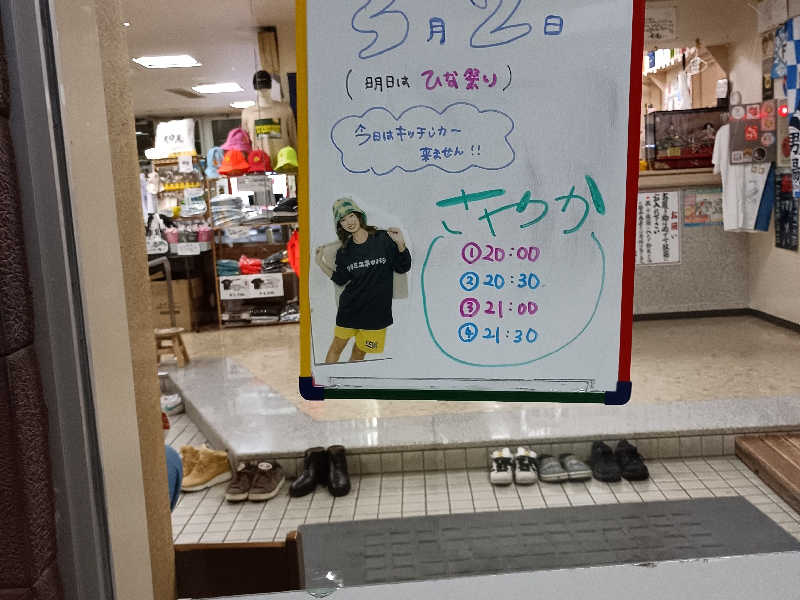 3月2日
(明日はひな祭り)
今日はキッチンカー
来ません!!
さやか
①20:00
②20:30
③21:00
④21:30
お願い